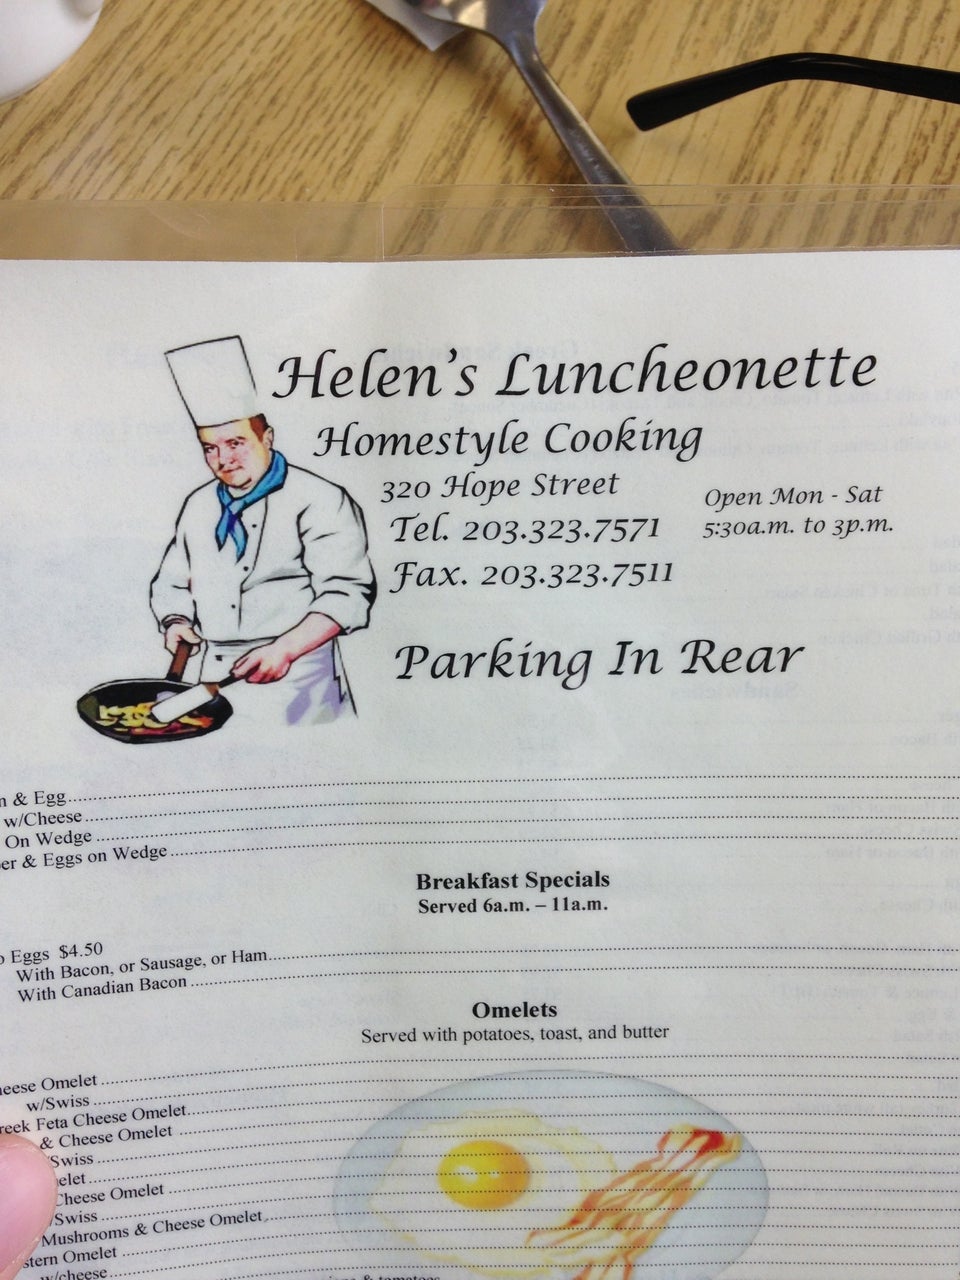 Helen's Luncheonette
Homestyle Cooking
320 Hope Street
Tel. 203.323.7571
Fax. 203.323.7511
Open Mon - Sat
5:30a.m. to 3p.m.
Parking In Rear
& Egg
w/Cheese
On Wedge
& Eggs on Wedge
Breakfast Specials
Served 6a.m. – 11a.m.
Eggs $4.50
With Bacon, or Sausage, or Ham
With Canadian Bacon
Omelets
Served with potatoes, toast, and butter
Omelet
w/Swiss
Feta Cheese Omelet
& Cheese Omelet
/Swiss
Cheese Omelet
/Swiss
Mushrooms & Cheese Omelet
Omelet
w/cheese
& tomatoes